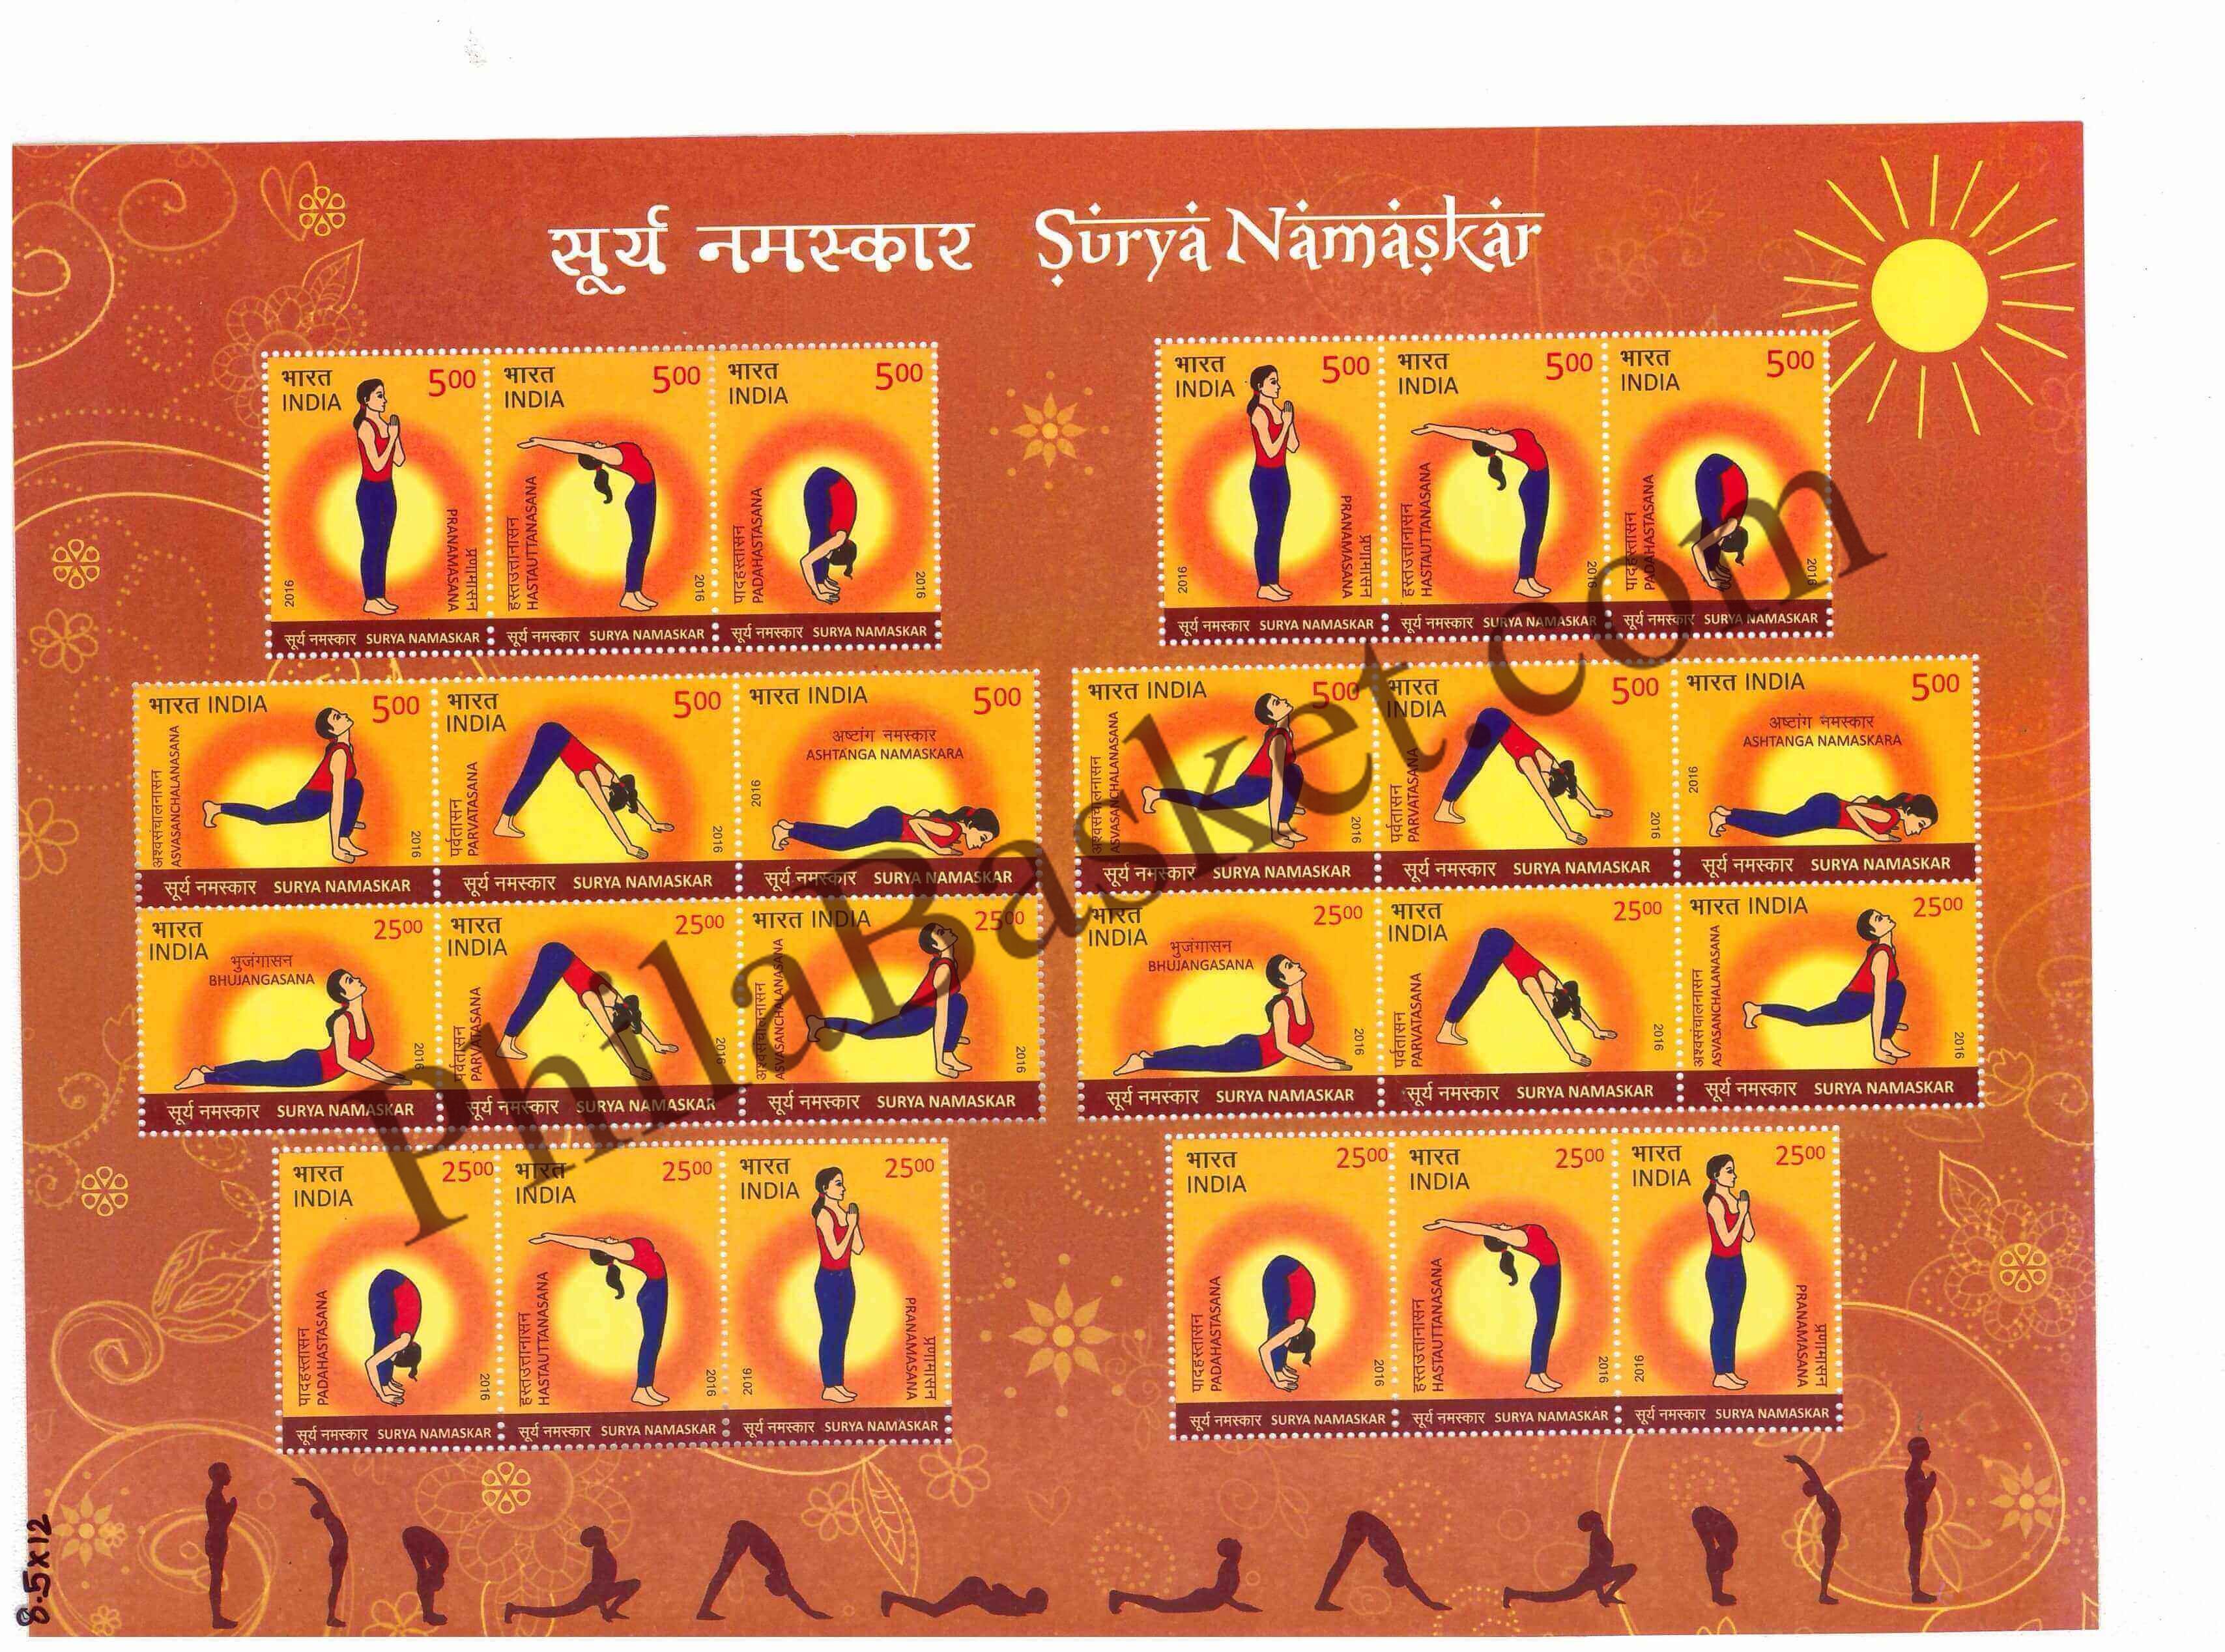 सूर्य नमस्कार Surya Namaskar
भारत
INDIA
500
प्रणामासन
PRANAMASANA
2016
सूर्य नमस्कार SURYA NAMASKAR
भारत
INDIA
500
हस्तउत्तानासन
HASTAUTTANASANA
2016
सूर्य नमस्कार SURYA NAMASKAR
भारत
INDIA
500
पादहस्तासन
PADAHASTASANA
2016
सूर्य नमस्कार SURYA NAMASKAR
भारत
INDIA
500
प्रणामासन
PRANAMASANA
2016
सूर्य नमस्कार SURYA NAMASKAR
भारत
INDIA
500
हस्तउत्तानासन
HASTAUTTANASANA
2016
सूर्य नमस्कार SURYA NAMASKAR
भारत
INDIA
500
पादहस्तासन
PADAHASTASANA
2016
सूर्य नमस्कार SURYA NAMASKAR
भारत INDIA
500
अश्वसंचालनासन
ASVASANCHALANASANA
2016
सूर्य नमस्कार SURYA NAMASKAR
भारत
INDIA
500
पर्वतासन
PARVATASANA
2016
सूर्य नमस्कार SURYA NAMASKAR
भारत INDIA
500
अष्टांग नमस्कार
ASHTANGA NAMASKARA
2016
सूर्य नमस्कार SURYA NAMASKAR
भारत INDIA
500
अश्वसंचालनासन
ASVASANCHALANASANA
2016
सूर्य नमस्कार SURYA NAMASKAR
भारत
INDIA
500
पर्वतासन
PARVATASANA
2016
सूर्य नमस्कार SURYA NAMASKAR
भारत INDIA
500
अष्टांग नमस्कार
ASHTANGA NAMASKARA
2016
सूर्य नमस्कार SURYA NAMASKAR
भारत
INDIA
2500
भुजंगासन
BHUJANGASANA
2016
सूर्य नमस्कार SURYA NAMASKAR
भारत
INDIA
2500
पर्वतासन
PARVATASANA
2016
सूर्य नमस्कार SURYA NAMASKAR
भारत INDIA
2500
अश्वसंचालनासन
ASVASANCHALANASANA
2016
सूर्य नमस्कार SURYA NAMASKAR
भारत
INDIA
2500
भुजंगासन
BHUJANGASANA
2016
सूर्य नमस्कार SURYA NAMASKAR
भारत
INDIA
2500
पर्वतासन
PARVATASANA
2016
सूर्य नमस्कार SURYA NAMASKAR
भारत INDIA
2500
अश्वसंचालनासन
ASVASANCHALANASANA
2016
सूर्य नमस्कार SURYA NAMASKAR
भारत
INDIA
2500
पादहस्तासन
PADAHASTASANA
2016
सूर्य नमस्कार SURYA NAMASKAR
भारत
INDIA
2500
हस्तउत्तानासन
HASTAUTTANASANA
2016
सूर्य नमस्कार SURYA NAMASKAR
भारत
INDIA
2500
प्रणामासन
PRANAMASANA
2016
सूर्य नमस्कार SURYA NAMASKAR
भारत
INDIA
2500
पादहस्तासन
PADAHASTASANA
2016
सूर्य नमस्कार SURYA NAMASKAR
भारत
INDIA
2500
हस्तउत्तानासन
HASTAUTTANASANA
2016
सूर्य नमस्कार SURYA NAMASKAR
भारत
INDIA
2500
प्रणामासन
PRANAMASANA
2016
सूर्य नमस्कार SURYA NAMASKAR
8.5x12
PhilaBasket.com